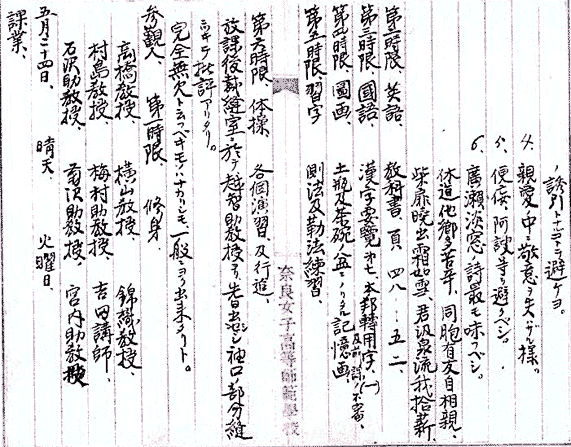 ノ誘引トナルコトヲ避ケヨ。
4. 親愛ノ中ニ敬意ヲ失ハザル様。
5. 便佞阿諛等ヲ避クベシ。
6. 廣瀬淡窓ノ詩最モ味フベシ。
休道他郷多苦辛、同胞有友自相親、
柴扉曉出霜如雪、君汲泉流我拾薪、
第二時限、英語、教科書、頁 四八...五二、
第三時限、國語、漢字要覧 本邦轉用字、(一)
第四時限、圖画、土瓶及茶碗 盆ニノリタル 記憶画、
第五時限、習字 則法及勒法練習
奈良女子高等師範學校
第六時限、体操、各個演習、及行進、
放課後裁縫室ニ於テ越智助教授ヨリ、昔日出セシ袖口部分縫
ニツキテ批評アリタリ。
完全無欠トモ云フベキモノハナカリシモ一般ヨク出来タリト。
参観人、第一時限 修身、
高橋教授、横山教授、錦織教授、
村島教授、梅村助教授、吉田講師、
石沢助教授、菊沢助教授、宮内助教授
五月二十四日、晴天、火曜日、
課業、